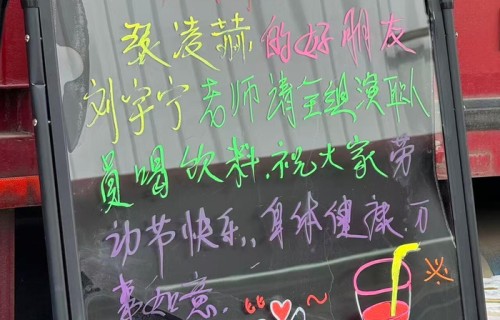 张凌赫的好朋友
刘宇宁老师请全组演职
员喝饮料.祝大家劳
动节快乐,,身体健康:万
事如意.